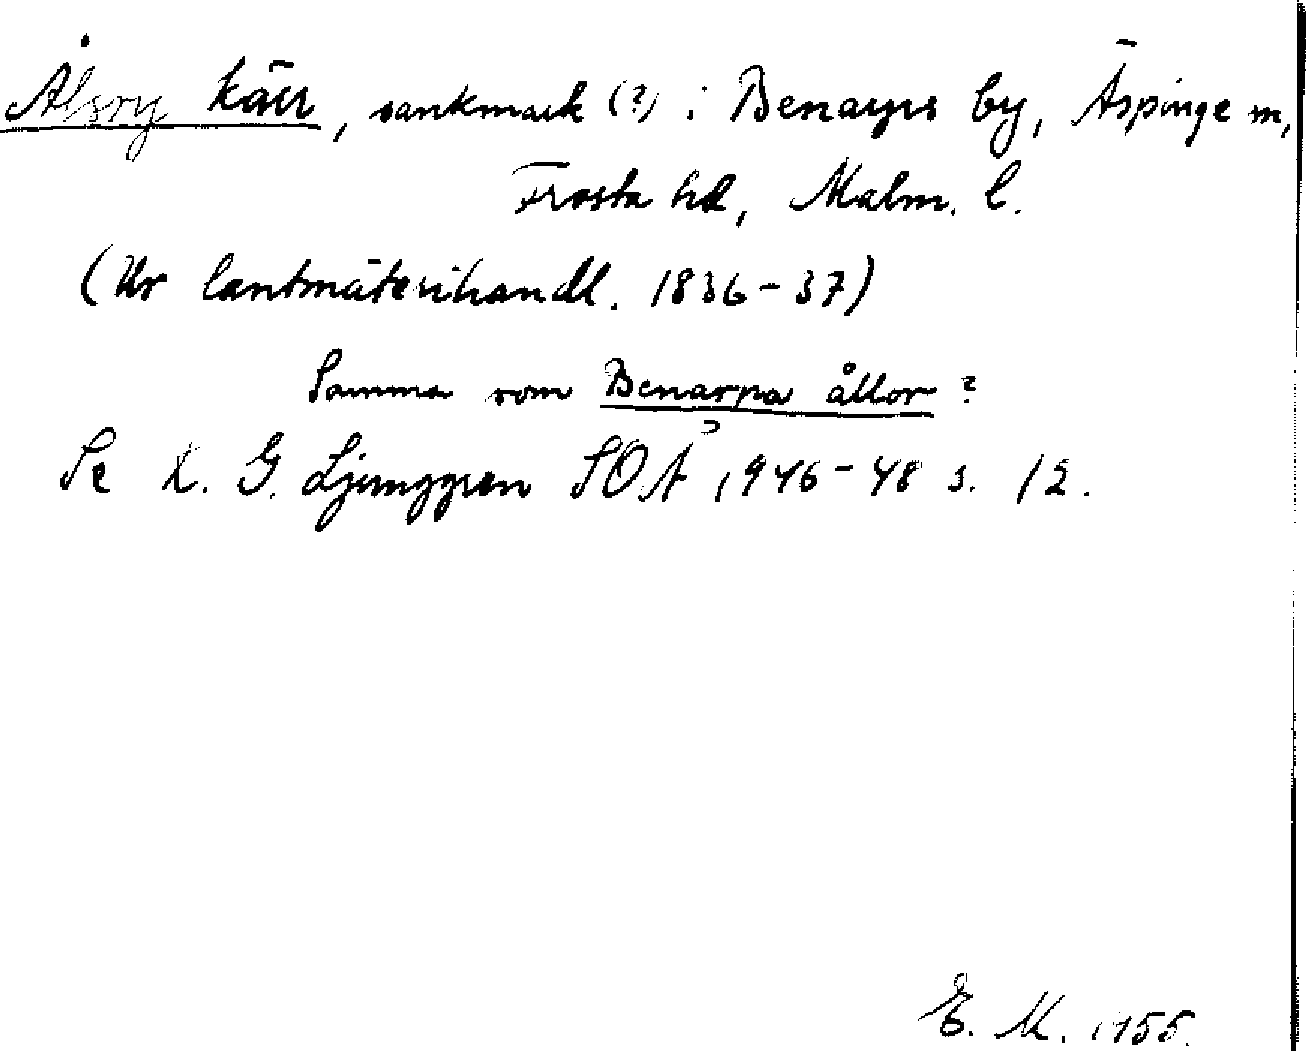 Ålsory kärr, sankmark (?) i Benarps by, Äspinge sn,
Frosta hd, Malm. l.
(Ur lantmäterihandl. 1836-37)
Samma som Benarpa ållor?
Se K. G. Ljunggren SOÅ 1946-48 s. 12.
E. M. 1955.